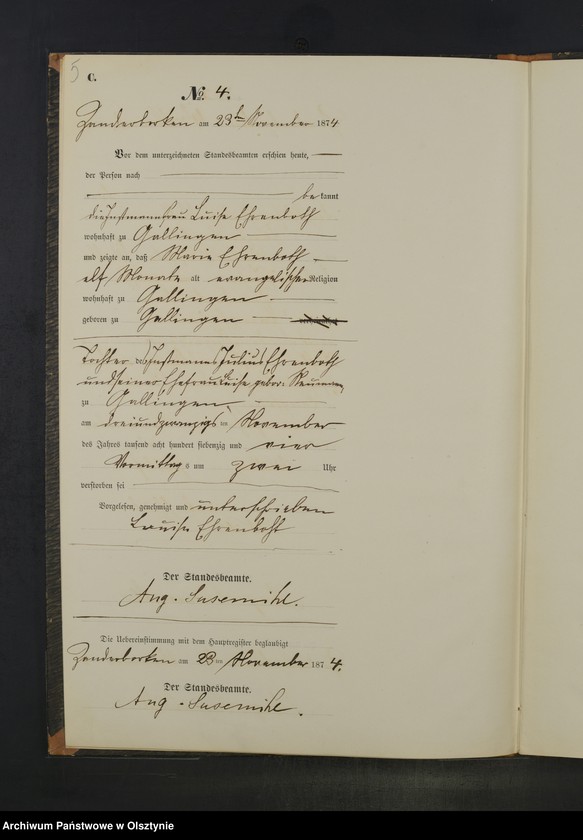 5
C.
No. 4.
Zanderborken am 23t November 1874
Vor dem unterzeichneten Standesbeamten erschien heute,
der Person nach
bekannt
die Instmannsfrau Luise Ehrenboth
wohnhaft zu Gallingen
und zeigte an, daß Marie Ehrenboth
elf Monate alt evangelischer Religion
wohnhaft zu Gallingen
geboren zu Gallingen
Tochter des Instmanns Julius Ehrenboth
und seiner Ehefrau Luise geborn: Neumann
zu Gallingen
am dreiundzwanzigsten November
des Jahres tausend acht hundert siebenzig und vier
Vormittags um zwei Uhr
verstorben sei
Vorgelesen, genehmigt und unterschrieben
Louise Ehrenboht
Der Standesbeamte.
Aug. Susemihl.
Die Uebereinstimmung mit dem Hauptregister beglaubigt
Zanderborken am 23ten November 1874.
Der Standesbeamte.
Aug. Susemihl.
Archiwum Państwowe w Olsztynie